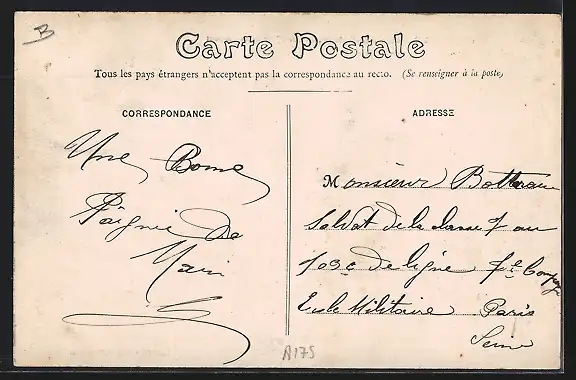 B
Carte Postale
Tous les pays étrangers n'acceptent pas la correspondance au recto. (Se renseigner à la poste)
CORRESPONDANCE
ADRESSE
Une Bonne
Poignie De
Main
Monsieur
Soldat de la classe 7 au
103e De ligne 7e Compg
Ecole Militaire Paris
Seine
A175